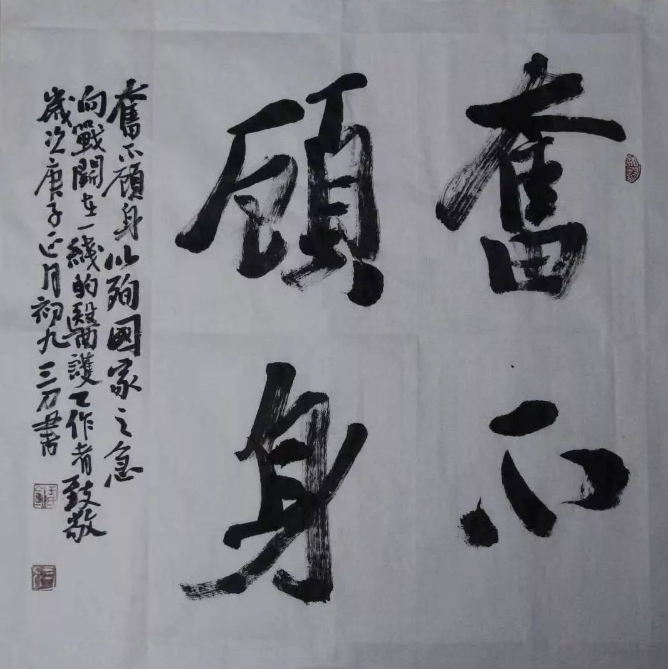 奮不
顧身
奮不顧身以殉國家之急
向戰鬭在一綫的醫護工作者致敬
歲次庚子正月初九三刀書